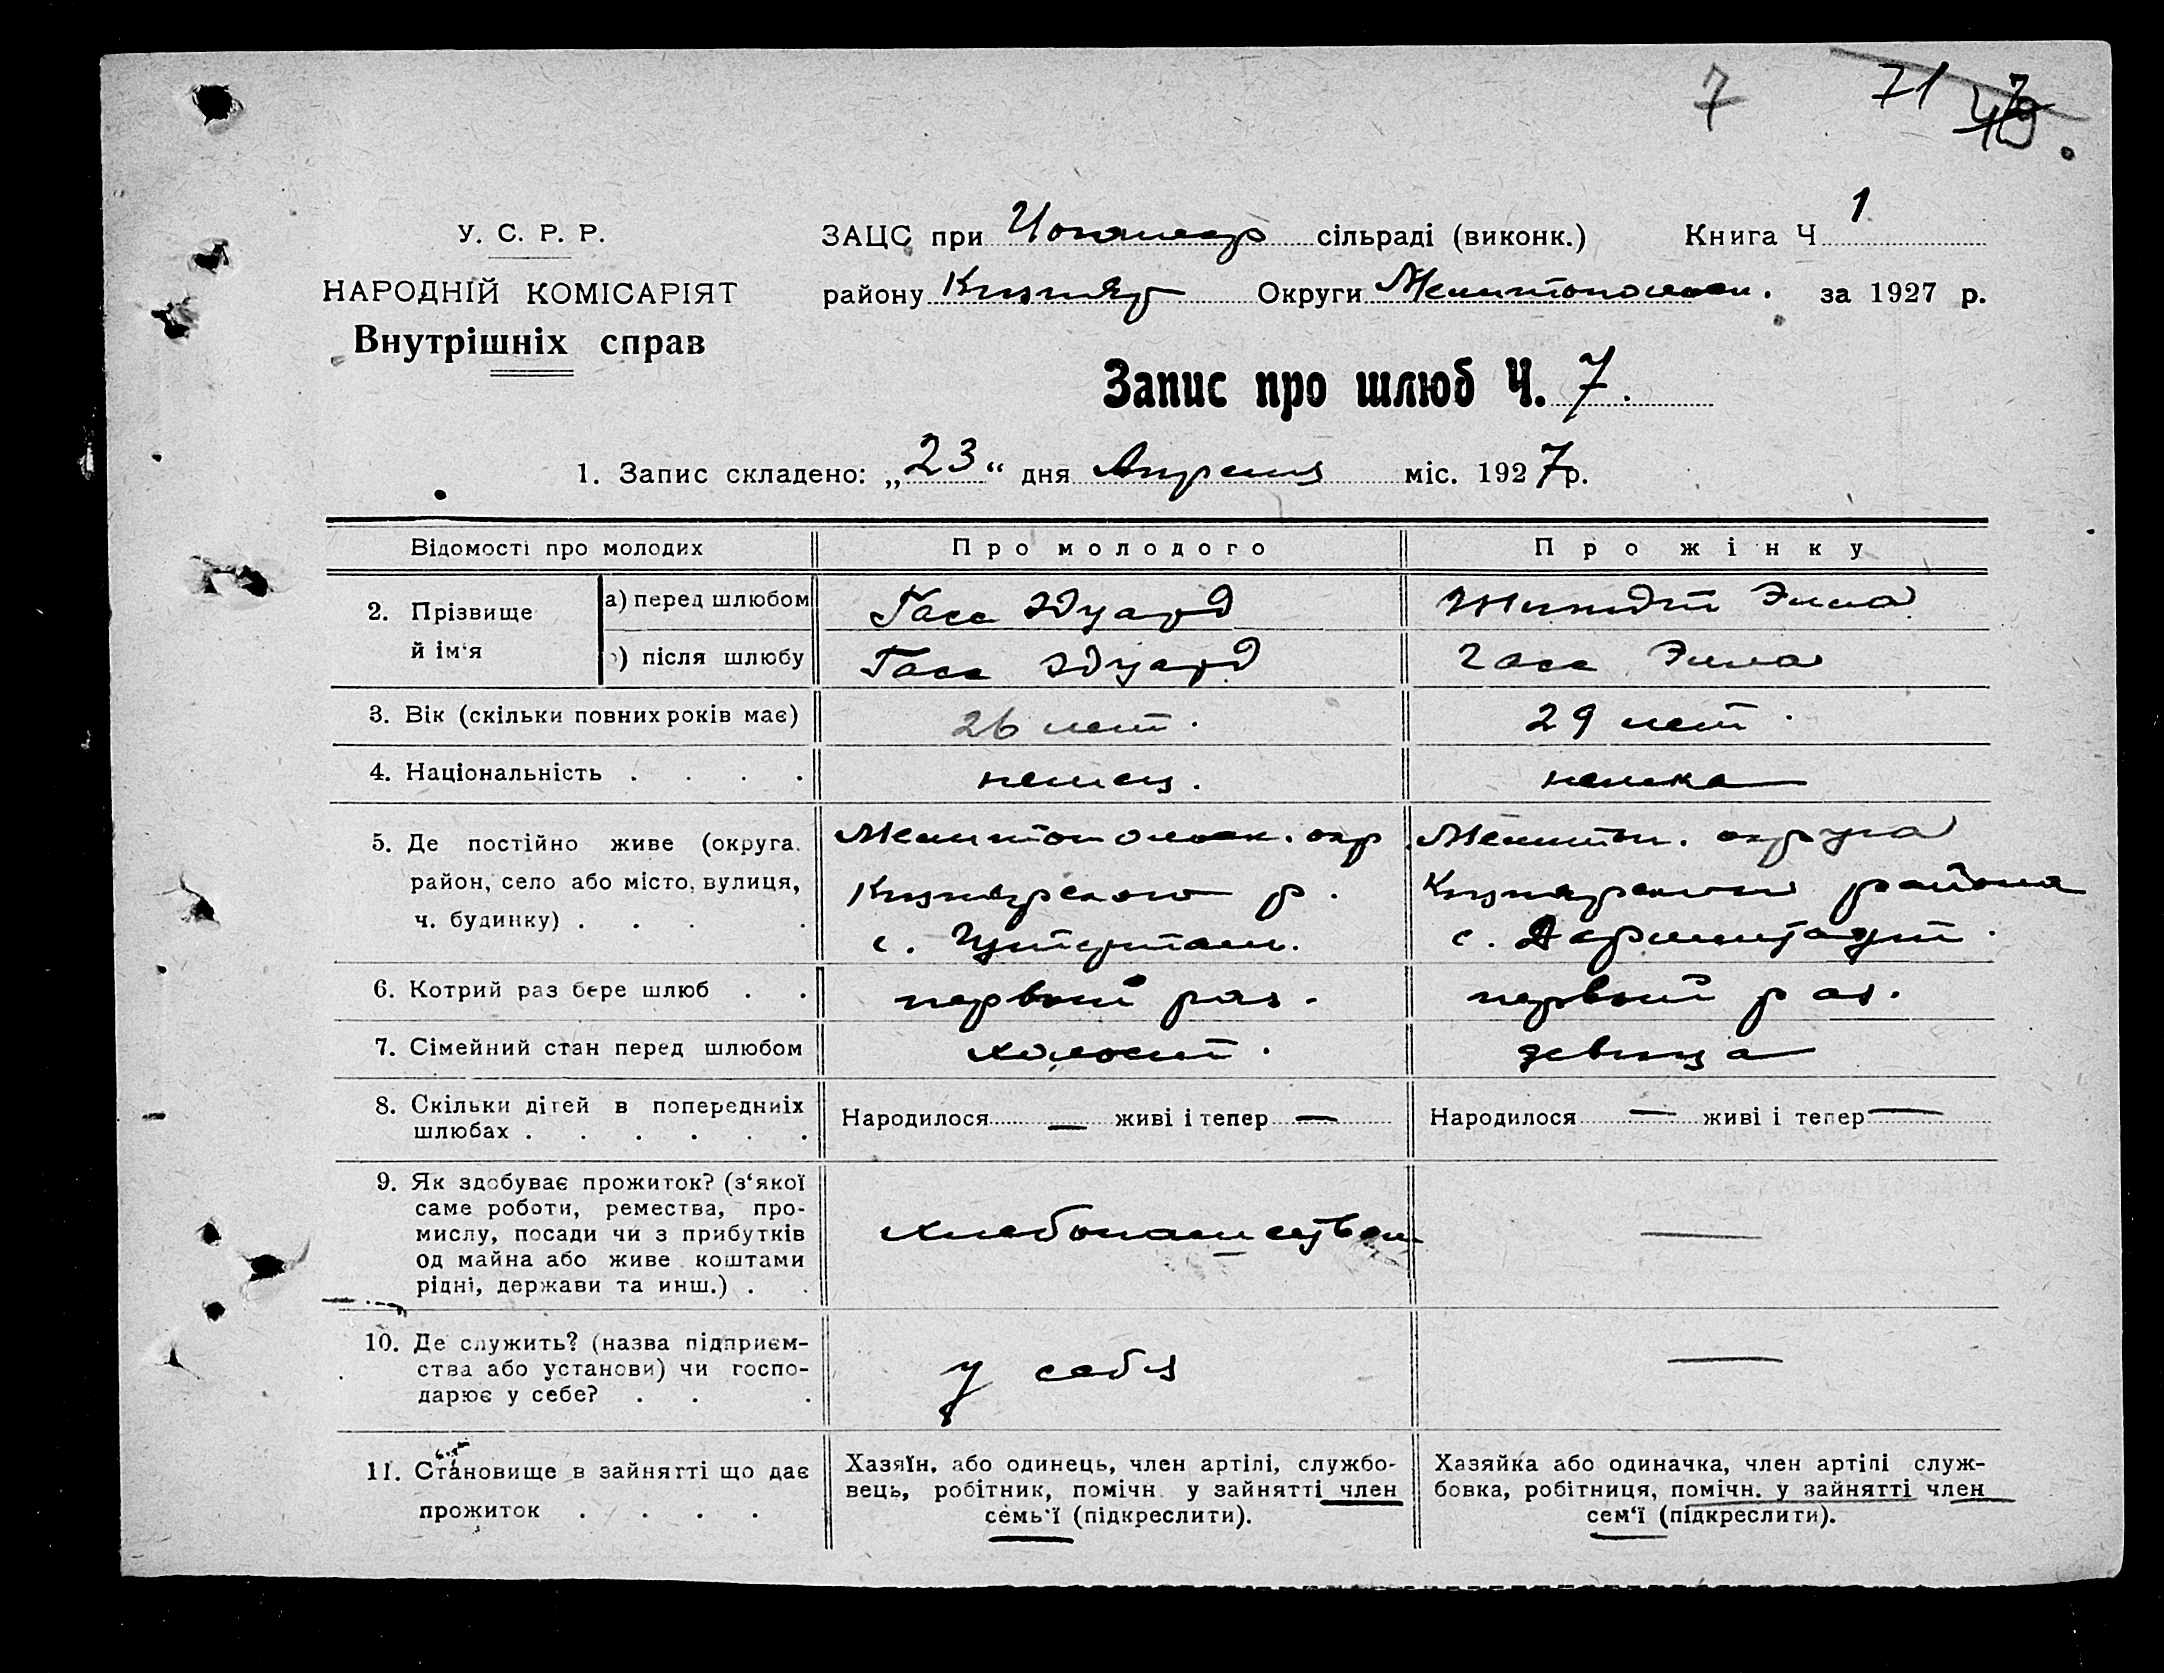 7 71
У. С. Р. Р.
НАРОДНІЙ КОМІСАРІЯТ
Внутрішніх справ
ЗАЦС при сільраді (виконк.) Книга Ч 1
району Округи Мелитопольск. за 1927 р.
Запис про шлюб Ч. 7.
1. Запис складено: „23“ дня Апреля міс. 1927 р.
Відомості про молодих Про молодого Про жінку
2. Прізвище й ім'я
а) перед шлюбом Гасс Эдуард Шмидт Элла
б) після шлюбу Гасс Эдуард Гасс Элла
3. Вік (скільки повних років має) 26 лет. 29 лет.
4. Національність . . . . немец. немка
5. Де постійно живе (округа, Мелитопольск. окр Мелитоп. округа
район, село або місто, вулиця, р. района
ч. будинку) . . . . с. с. Дармштадт.
6. Котрий раз бере шлюб . . первый раз. первый раз.
7. Сімейний стан перед шлюбом холост. девица
8. Скільки дітей в попередниіх
шлюбах . . . . . . Народилося — живі і тепер — Народилося — живі і тепер —
9. Як здобуває прожиток? (з‘якої
саме роботи, ремества, про-
мислу, посади чи з прибутків хлебопашеством —
од майна або живе коштами
рідні, держави та инш.) . .
10. Де служить? (назва підприєм-
ства або установи) чи госпо- у себя —
дарює у себе? . . .
11. Становище в зайнятті що дає
прожиток . . . .
Хазяїн, або одинець, член артілі, службо-
вець, робітник, помічн. у зайнятті член
семь'ї (підкреслити).
Хазяйка або одиначка, член артілі служ-
бовка, робітниця, помічн. у зайнятті член
сем‘ї (підкреслити).